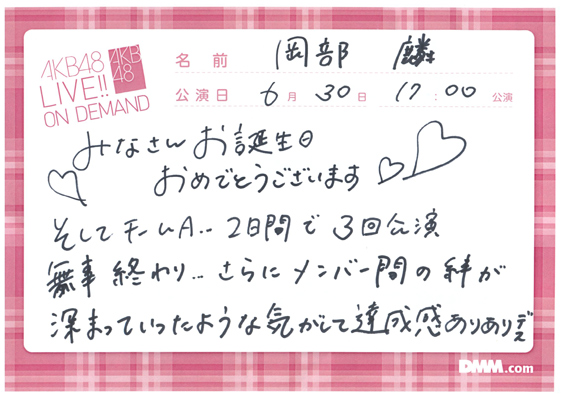 AKB48
LIVE!!
ON DEMAND
AKB
48
名前 岡部 麟
公演日 6月30日 17:00公演
みなさんお誕生日
おめでとうございます
そしてチームA.. 2日間で3回公演
無事終わり...さらにメンバー間の絆が
深まっていったような気がして達成感ありありデス
DMM.com